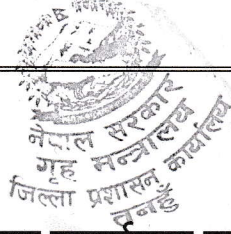 नेपाल सरकार
गृह मन्त्रालय
जिल्ला प्रशासन कार्यालय
तनहुँ